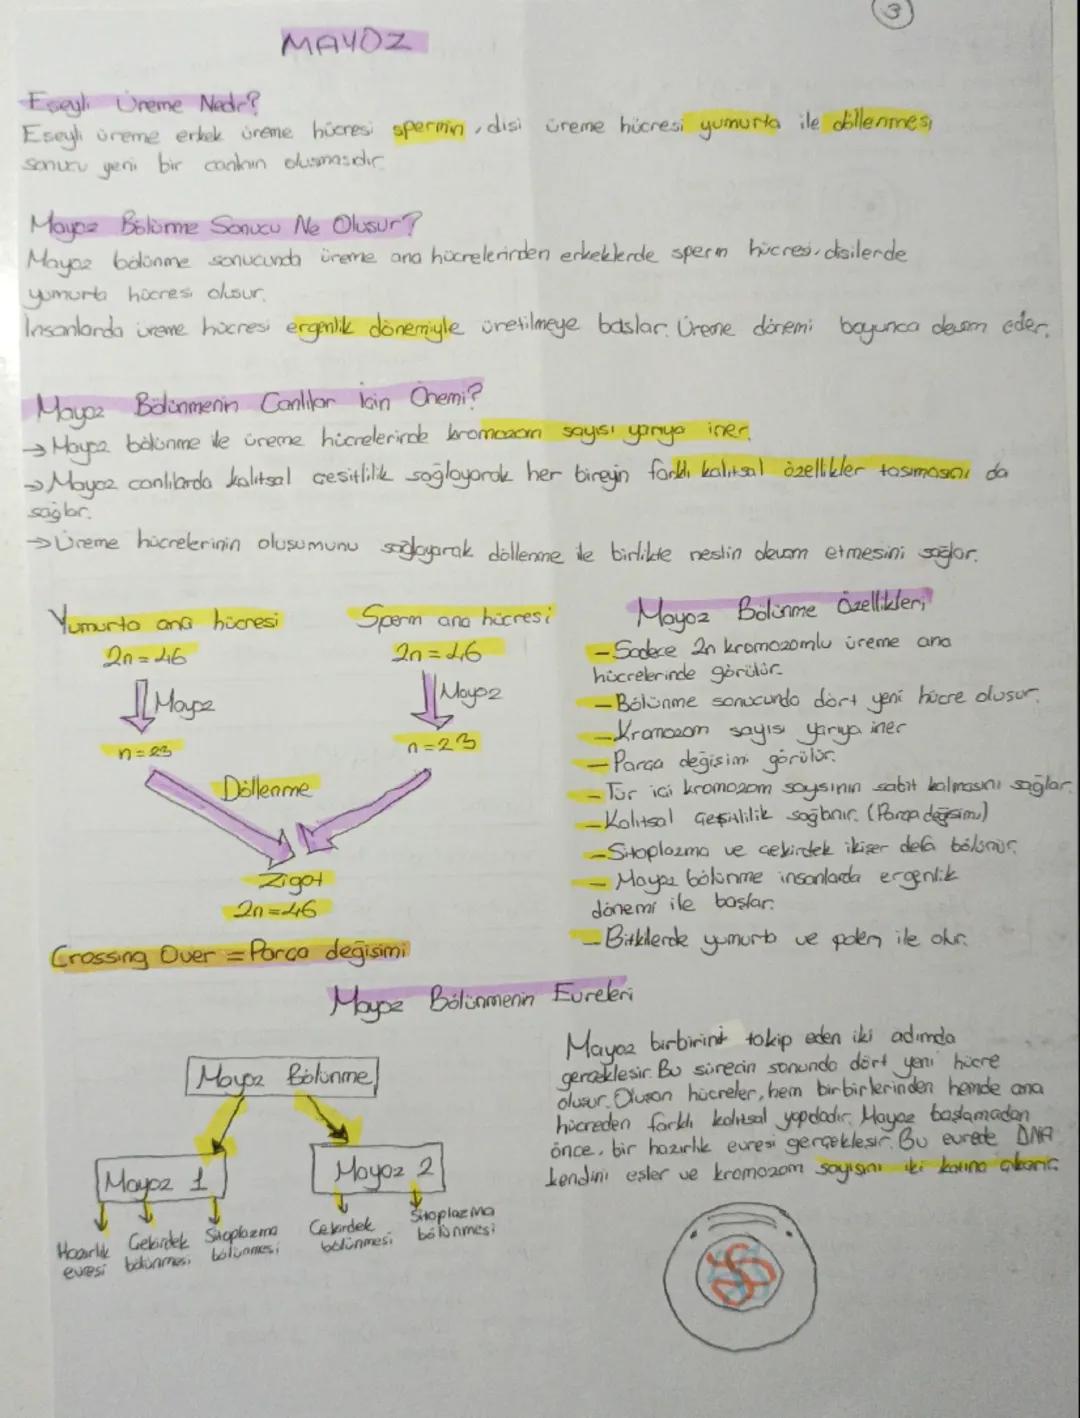 3
MAYOZ
Eşeyli Üreme Nedir?
Eşeyli üreme erkek üreme hücresi spermin, dişi üreme hücresi yumurta ile döllenmesi
sonucu yeni bir canlının oluşmasıdır.
Mayoz Bölünme Sonucu Ne Oluşur?
Mayoz bölünme sonucunda üreme ana hücrelerinden erkeklerde sperm hücresi, dişilerde
yumurta hücresi oluşur.
İnsanlarda üreme hücresi ergenlik dönemiyle üretilmeye başlar. Üreme dönemi boyunca devam eder.
Mayoz Bölünmenin Canlılar İçin Önemi?
→ Mayoz bölünme ile üreme hücrelerinde kromozom sayısı yarıya iner.
→ Mayoz canlılarda kalıtsal çeşitlilik sağlayarak her bireyin farklı kalıtsal özellikler taşımasını da
sağlar.
→ Üreme hücrelerinin oluşumunu sağlayarak döllenme ile birlikte neslin devam etmesini sağlar.
Yumurta ana hücresi
2n=46
Mayoz
n=23
Sperm ana hücresi
2n=46
Mayoz
n=23
Döllenme
Zigot
2n=46
Crossing Over = Parça değişimi
Mayoz Bölünme Özellikleri
- Sadece 2n kromozomlu üreme ana
hücrelerinde görülür.
- Bölünme sonucunda dört yeni hücre oluşur.
- Kromozom sayısı yarıya iner
- Parça değişimi görülür.
- Tür içi kromozom sayısının sabit kalmasını sağlar.
- Kalıtsal çeşitlilik sağlanır. (Parça değişimi)
- Sitoplazma ve çekirdek ikişer defa bölünür.
- Mayoz bölünme insanlarda ergenlik
dönemi ile başlar.
- Bitkilerde yumurta ve polen ile olur.
Mayoz Bölünmenin Evreleri
Mayoz Bölünme
Mayoz 1
Mayoz 2
Hazırlık
evresi
Çekirdek
bölünmesi
Sitoplazma
bölünmesi
Çekirdek
bölünmesi
Sitoplazma
bölünmesi
Mayoz birbirini takip eden iki adımda
gerçekleşir. Bu sürecin sonunda dört yeni hücre
oluşur. Oluşan hücreler, hem birbirlerinden hemde ana
hücreden farklı kalıtsal yapıdadır. Mayoz başlamadan
önce, bir hazırlık evresi gerçekleşir. Bu evrede DNA
kendini eşler ve kromozom sayısını iki katına çıkarır.